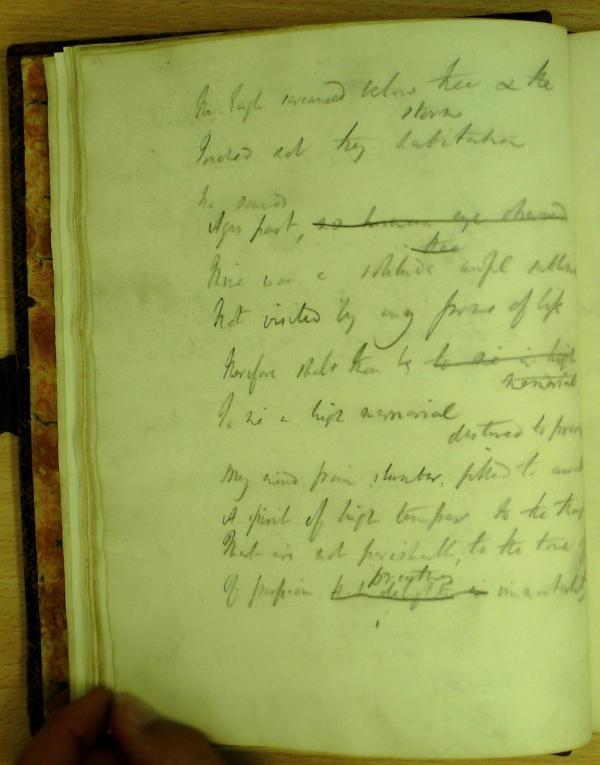 The Eagle screamed below thee & the
storm
Touched not thy habitation
he sound
Ages past, no human eye observed
thee
Thine was a solitude awful sublime
Not visited by any forms of life
Therefore shalt thou be to me a high
memorial
To me a high memorial
destined to
My mind from slumber, fitted to
A spirit of high temper to the
That are not perishable, to the tone
Of passion breathes immortality